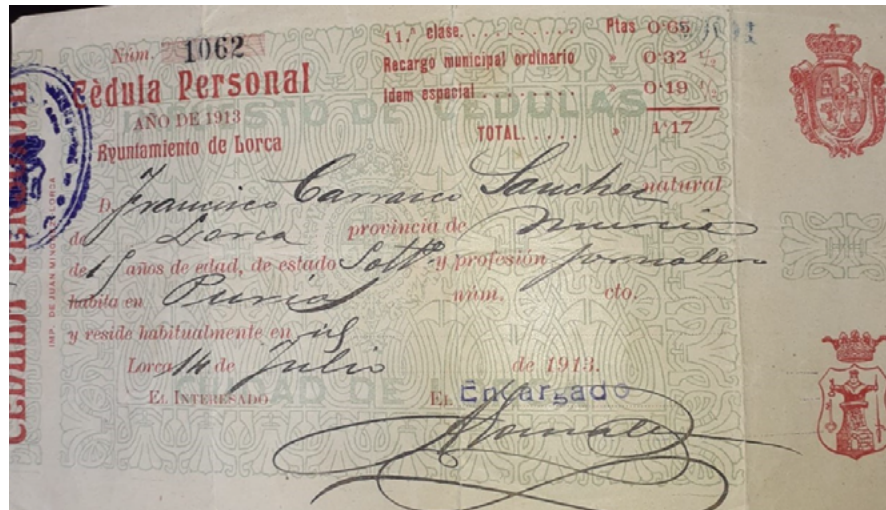 Núm. 1062
Cèdula Personal
AÑO DE 1913
Ayuntamiento de Lorca
11.ª clase. . . . . . . . . . Ptas 0'65
Recargo municipal ordinario » 0'32 1/2
Idem especial . . . . . . . . » 0'19 1/2
TOTAL. . . . . » 1'17
IMPUESTO DE CEDULAS
D. Francisco Carrasco Sanchez natural
de Lorca provincia de Murcia
de 15 años de edad, de estado Solt.º y profesión Jornalero
habita en Purias núm. cto.
y reside habitualmente en id
Lorca 14 de Julio de 1913.
EL INTERESADO EL Encargado
CIUDAD DE
CEDULA PERSONAL
IMP. DE JUAN LORCA